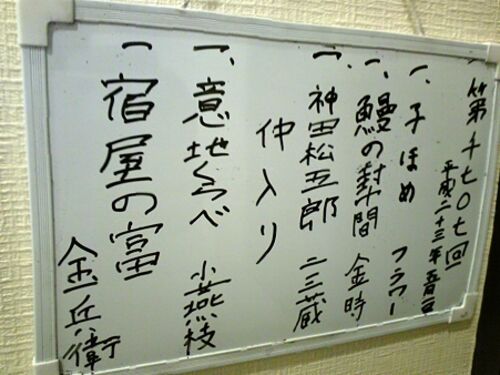 一第千七〇七回
平成二十三年五月
一、子ほめ フラワー
一、鰻の幇間 金時
一、神田松五郎 二三蔵
仲入り
一、意地くらべ 小燕枝
一宿屋の富 金兵衛